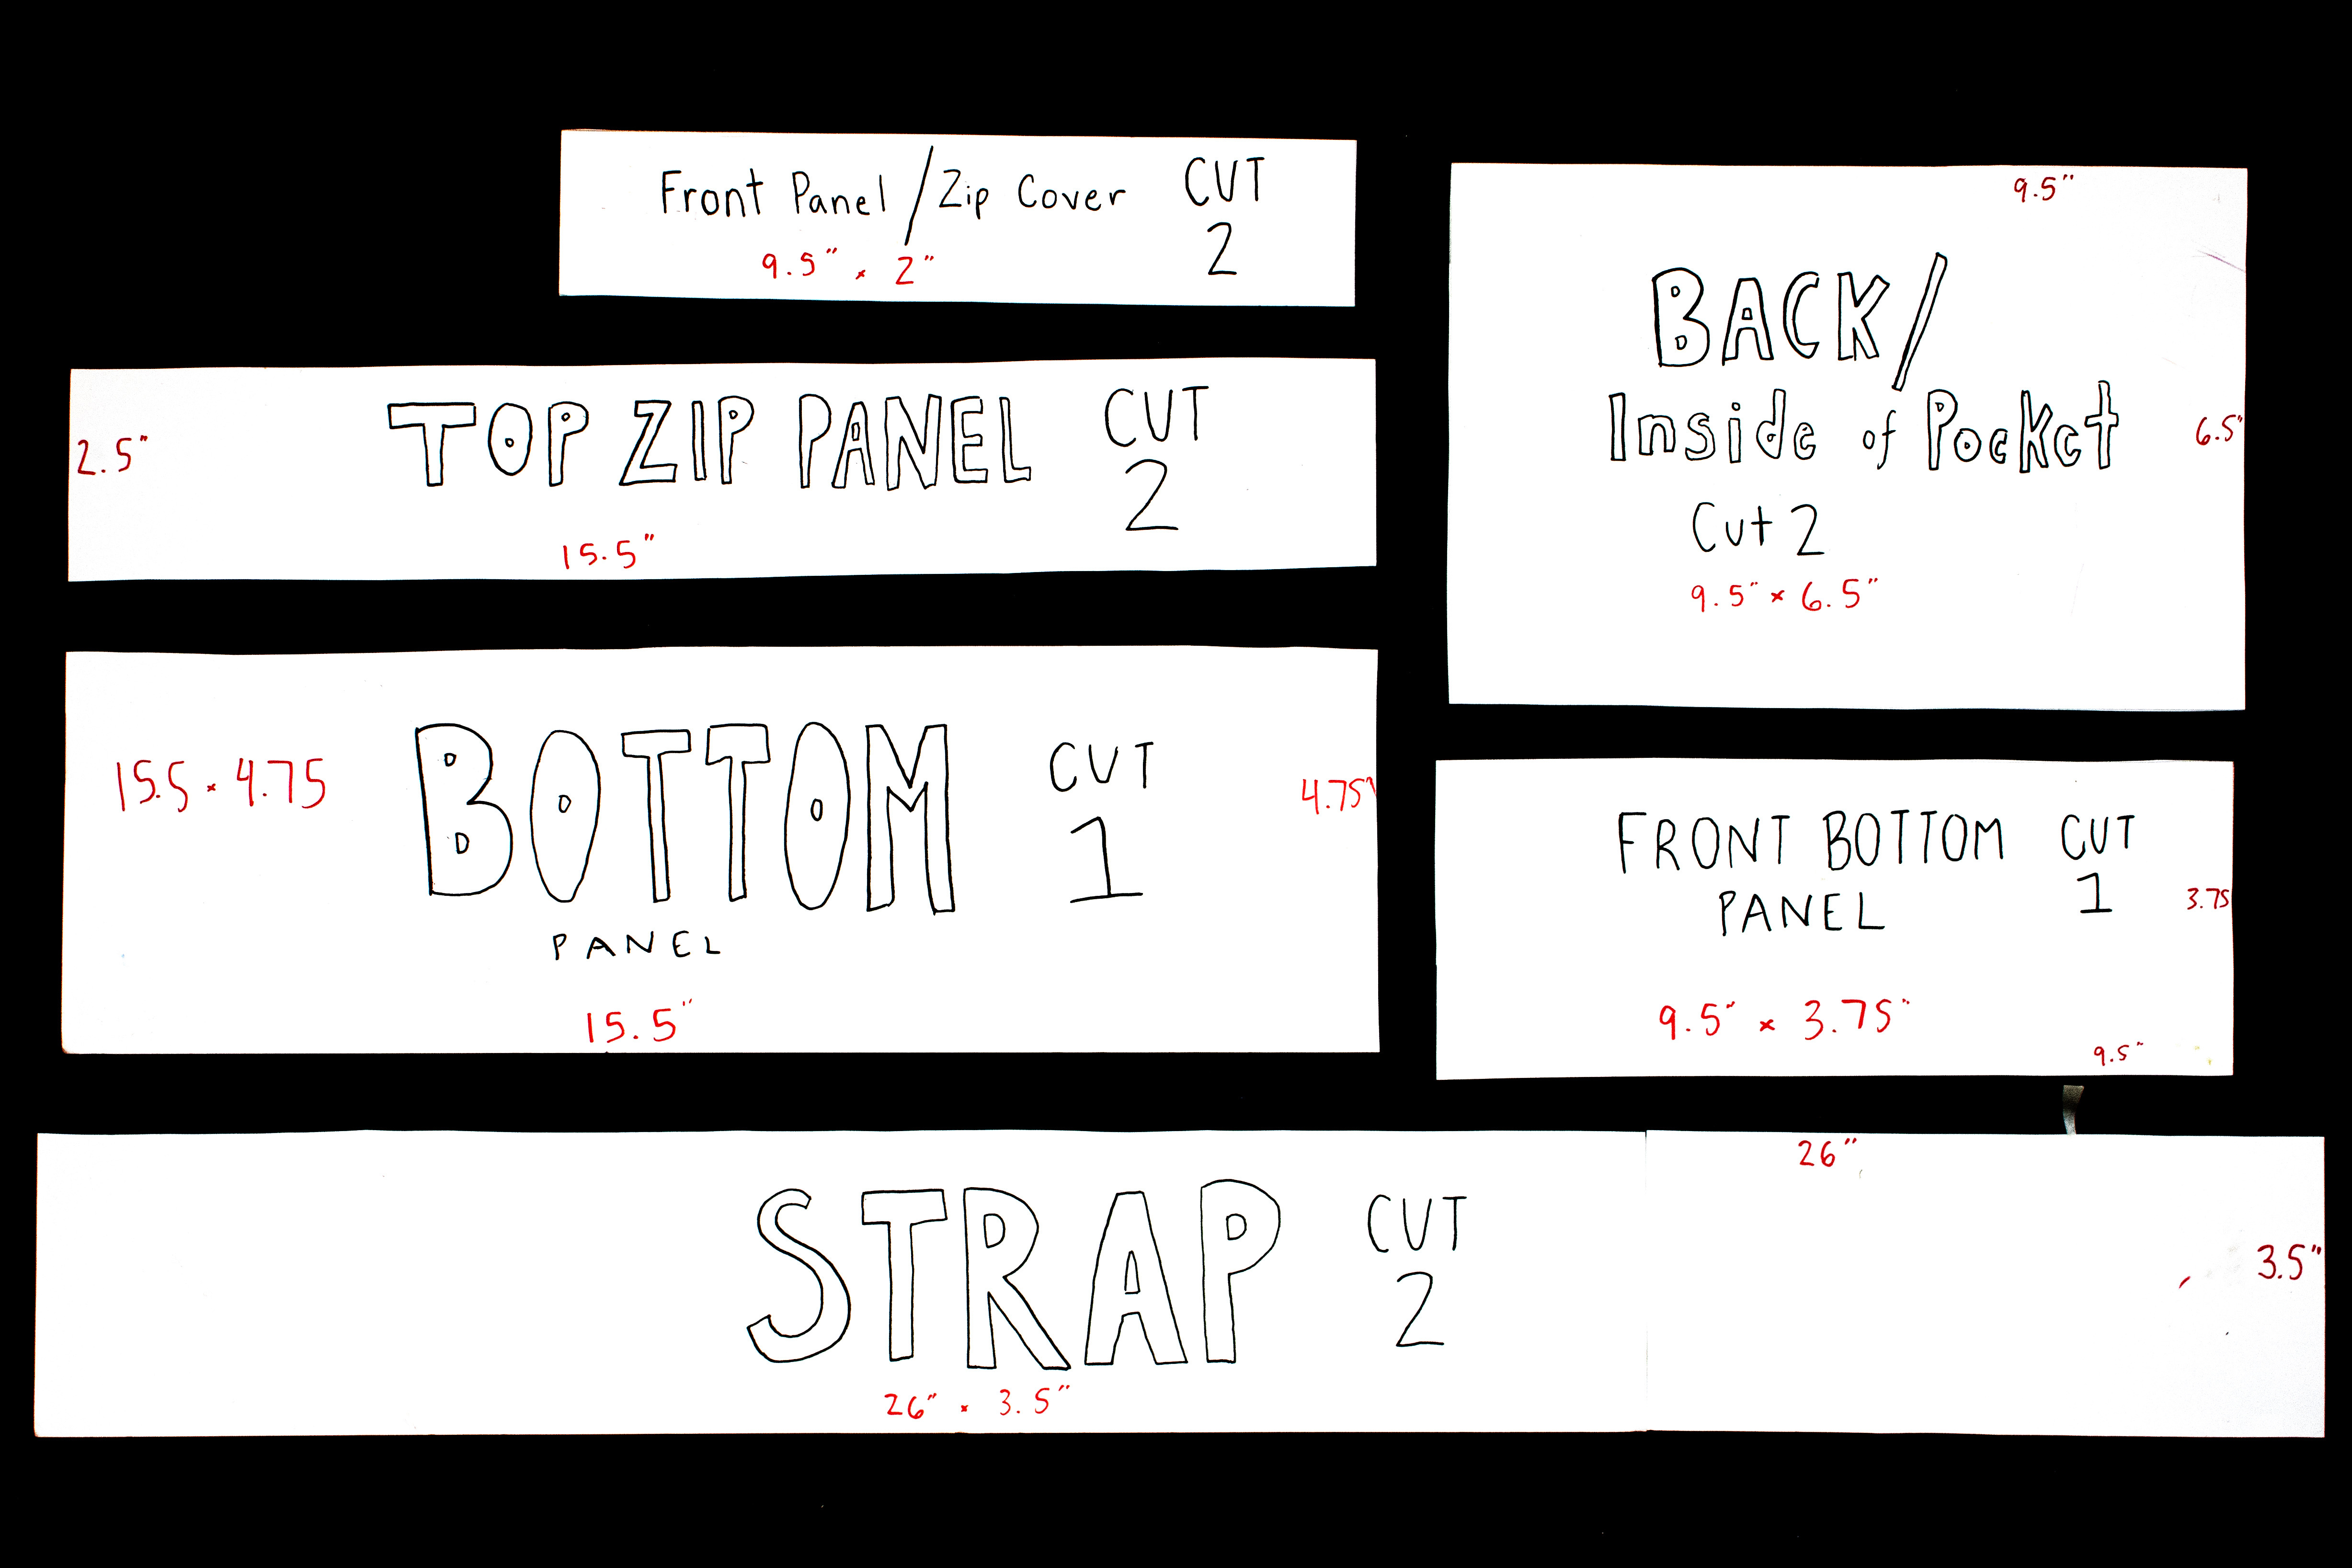 Front Panel / Zip Cover CUT
2
9.5" x 2"
TOP ZIP PANEL CUT
2
2.5"
15.5"
15.5 x 4.75
BOTTOM CUT
1
4.75"
PANEL
15.5"
9.5"
BACK/
Inside of Pocket
6.5"
Cut 2
9.5" x 6.5"
FRONT BOTTOM CUT
PANEL 1
3.75
9.5" x 3.75"
9.5"
26"
STRAP CUT
2
3.5"
26" x 3.5"